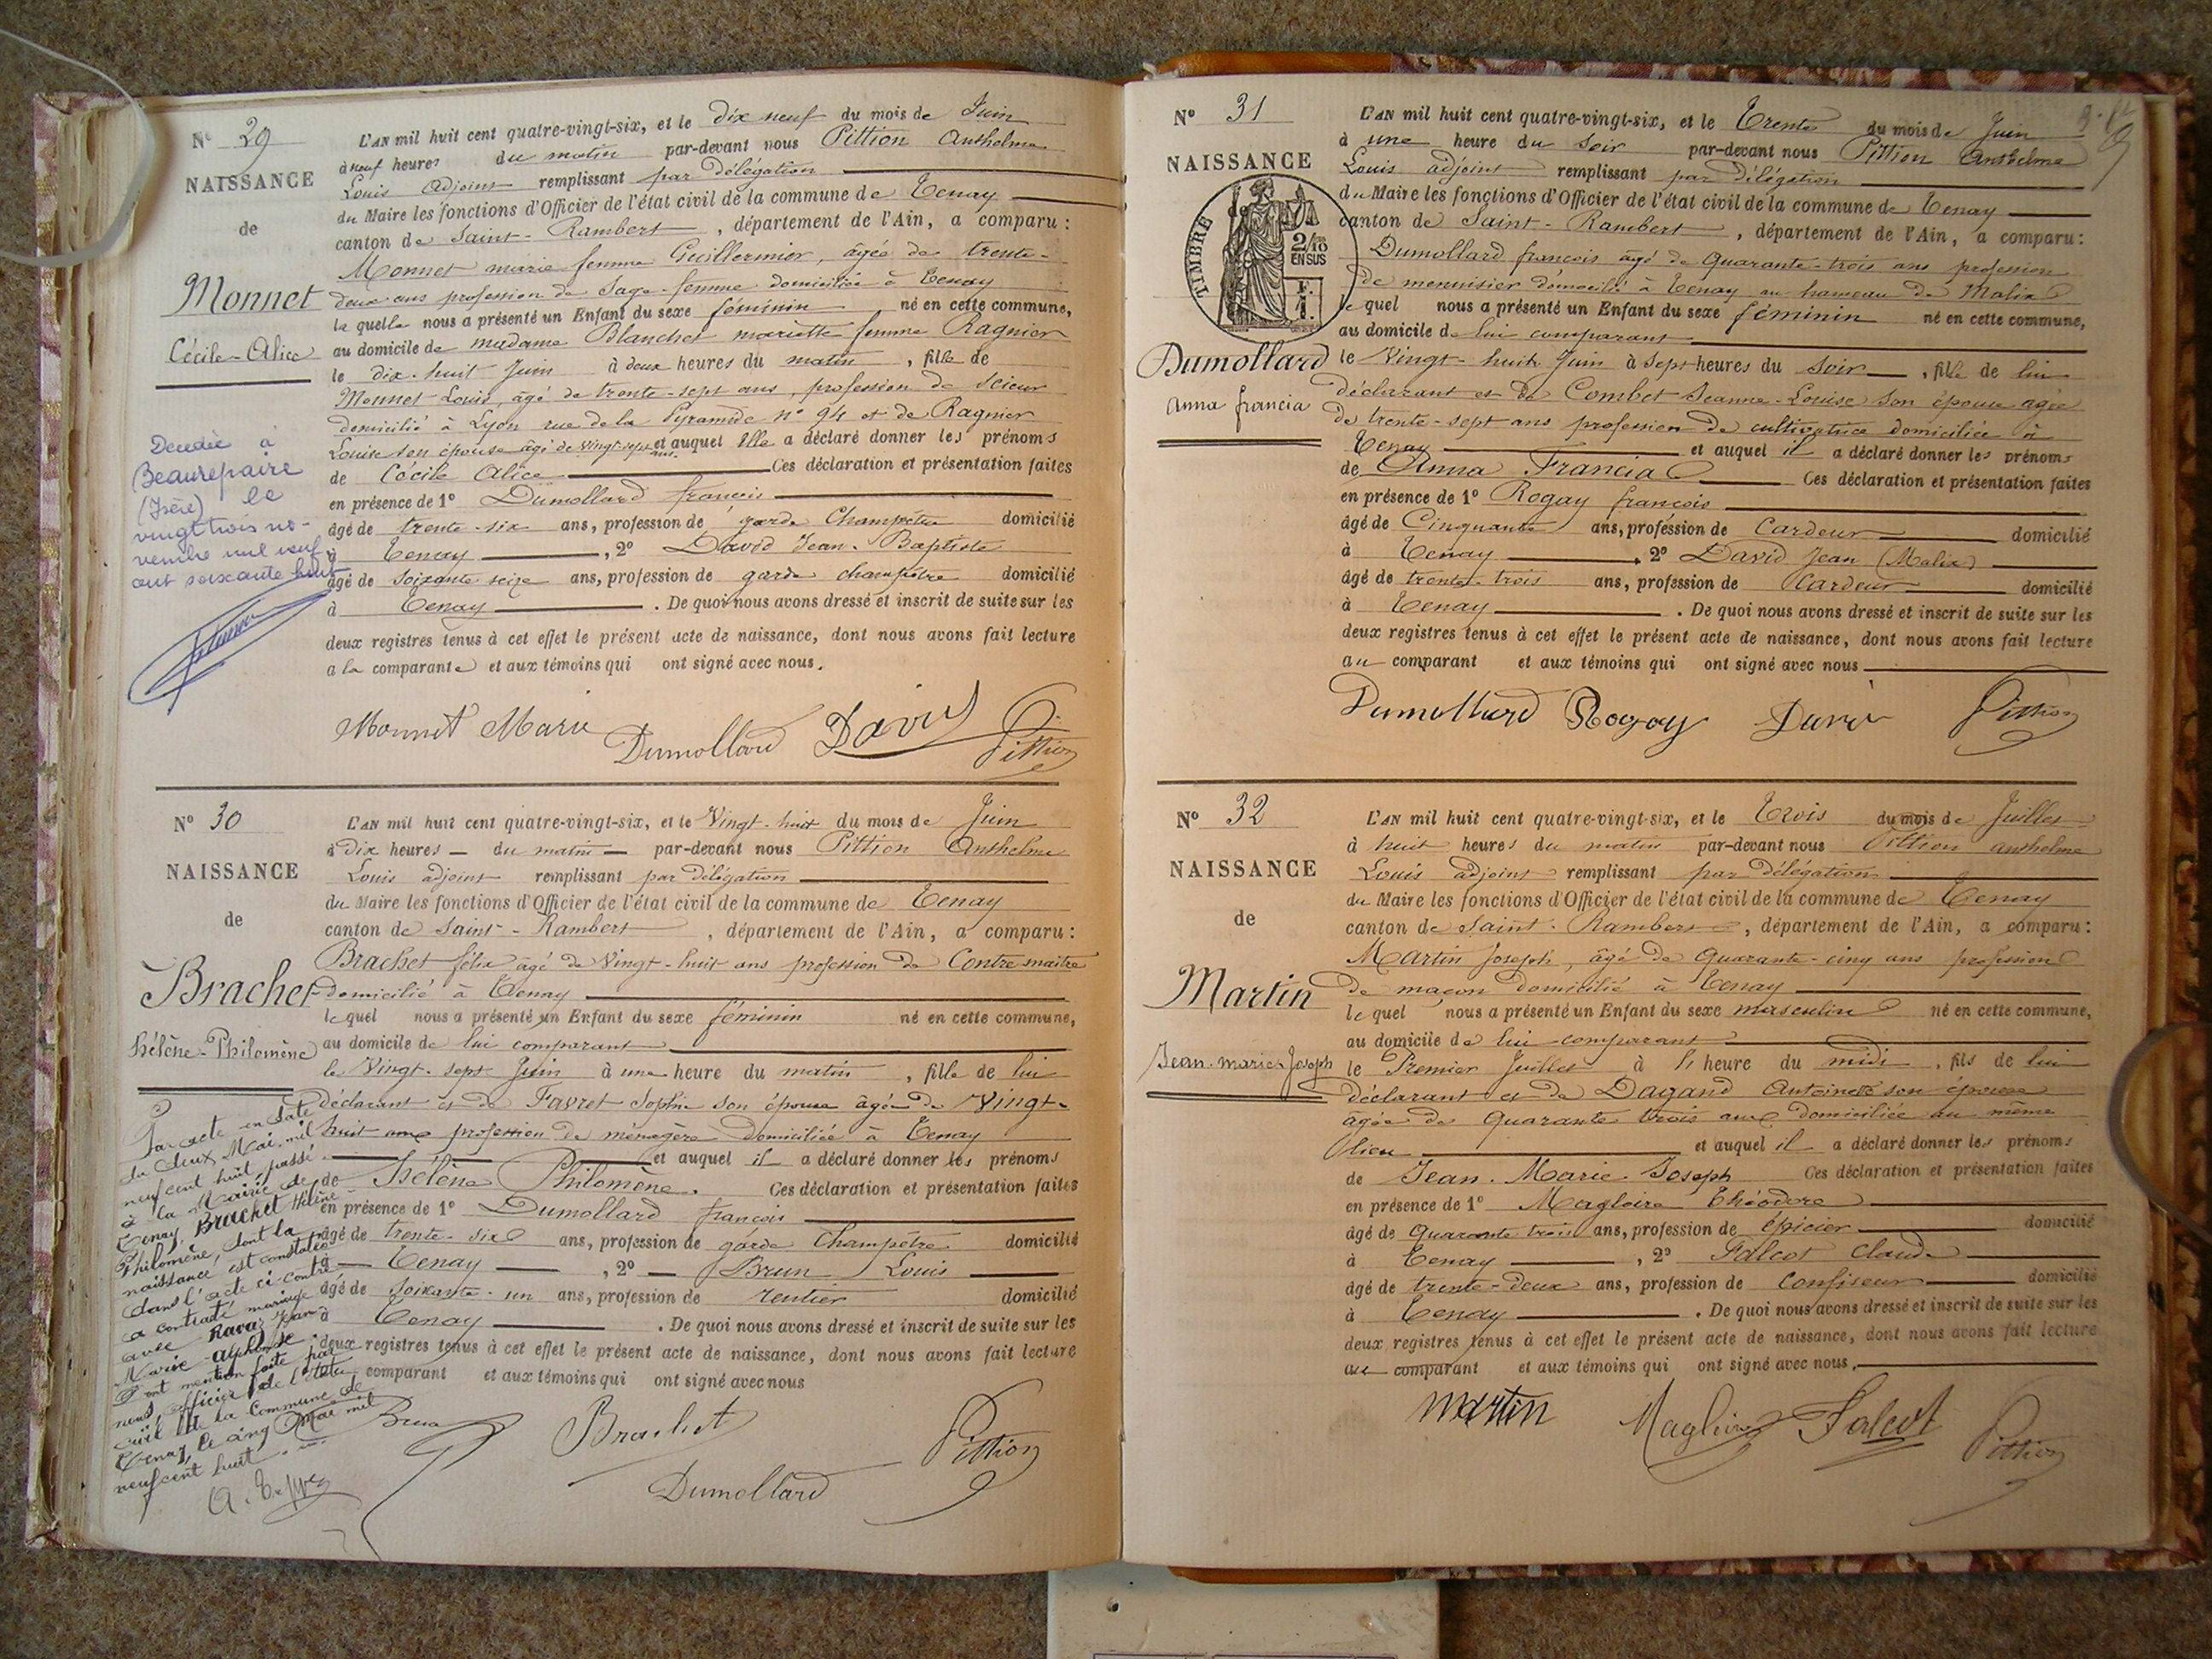 N° 29
NAISSANCE
de
Monnet
Cécile-Alice
L'AN mil huit cent quatre-vingt-six, et le dix neuf du mois de Juin
à neuf heures du matin par-devant nous Pittion Anthelme
Louis adjoint remplissant par délégation
du Maire les fonctions d'Officier de l'état civil de la commune de Tenay
canton de Saint-Rambert, département de l'Ain, a comparu :
Monnet marie femme Guillermier, âgée de trente-
deux ans profession de Sage-femme domiciliée à Tenay
laquelle nous a présenté un Enfant du sexe féminin né en cette commune,
au domicile de madame Blanchet mariette femme Ragnier
le dix-huit Juin à deux heures du matin, fille de
Monnet Louis, âgé de trente-sept ans, profession de Scieur
domicilié à Lyon rue de la Pyramide n° 94 et de Ragnier
Louise son épouse âgé de vingt-sept ans. et auquel Elle a déclaré donner les prénoms
de Cécile Alice Ces déclaration et présentation faites
en présence de 1° Dumollard françois
âgé de trente-six ans, profession de garde Champêtre domicilié
à Tenay, 2° David Jean-Baptiste
âgé de soixante seize ans, profession de garde champêtre domicilié
à Tenay. De quoi nous avons dressé et inscrit de suite sur les
deux registres tenus à cet effet le présent acte de naissance, dont nous avons fait lecture
a la comparante et aux témoins qui ont signé avec nous.
Decedée à
Beaurepaire
(Isère) le
vingt trois no-
vembre mil neuf
cent soixante huit
Monnet Marie Dumollard David Pittion
N° 30
NAISSANCE
de
Brachet
Hélène-Philomène
L'AN mil huit cent quatre-vingt-six, et le Vingt-huit du mois de Juin
à dix heures du matin par-devant nous Pittion Anthelme
Louis adjoint remplissant par délégation
du Maire les fonctions d'Officier de l'état civil de la commune de Tenay
canton de Saint-Rambert, département de l'Ain, a comparu :
Brachet félix âgé de Vingt-huit ans profession de Contre-maître
domicilié à Tenay
lequel nous a présenté un Enfant du sexe féminin né en cette commune,
au domicile de lui comparant
le Vingt-sept Juin à une heure du matin, fille de lui
déclarant et de Favret Sophie son épouse âgée de Vingt-
huit ans profession de ménagère domiciliée à Tenay
et auquel il a déclaré donner les prénoms
de Hélène Philomène. Ces déclaration et présentation faites
en présence de 1° Dumollard françois
âgé de trente-six ans, profession de garde Champêtre domicilié
à Tenay, 2° Brun Louis
âgé de soixante-un ans, profession de rentier domicilié
à Tenay. De quoi nous avons dressé et inscrit de suite sur les
deux registres tenus à cet effet le présent acte de naissance, dont nous avons fait lecture
au comparant et aux témoins qui ont signé avec nous
Par acte en date
du deux Mai mil
neuf cent huit passé
à la Mairie de
Tenay, Brachet Hélène
Philomène, dont la
naissance est constatée
dans l'acte ci contre
a contracté mariage
avec Ravaz Jean
Marie-Alphonse.
Dont mention faite par
nous, officier de l'état
civil de la Commune de
Tenay, le cinq Mai mil
neuf cent huit.
Brun Brachet Pittion
Dumollard
N° 31
NAISSANCE
de
TIMBRE
2/10
EN SUS
F.
1.
Dumollard
Anna francia
L'AN mil huit cent quatre-vingt-six, et le Trente du mois de Juin
à une heure du Soir par-devant nous Pittion Anthelme
Louis adjoint remplissant par délégation
du Maire les fonctions d'Officier de l'état civil de la commune de Tenay
canton de Saint-Rambert, département de l'Ain, a comparu :
Dumollard françois âgé de quarante-trois ans profession
de menuisier domicilié à Tenay au hameau de Malix
lequel nous a présenté un Enfant du sexe féminin né en cette commune,
au domicile de lui comparant
le Vingt-huit Juin à sept heures du soir, fille de lui
déclarant et de Combet Jeanne-Louise son épouse agée
de trente-sept ans profession de cultivatrice domiciliée à
Tenay et auquel il a déclaré donner les prénoms
de Anna Francia Ces déclaration et présentation faites
en présence de 1° Rogay françois
âgé de Cinquante ans, profession de Cardeur domicilié
à Tenay, 2° David Jean (Malix)
âgé de trente-trois ans, profession de Cardeur domicilié
à Tenay. De quoi nous avons dressé et inscrit de suite sur les
deux registres tenus à cet effet le présent acte de naissance, dont nous avons fait lecture
au comparant et aux témoins qui ont signé avec nous
Dumollard Rogay David Pittion
N° 32
NAISSANCE
de
Martin
Jean-marie-Joseph
L'AN mil huit cent quatre-vingt-six, et le Trois du mois de Juillet
à huit heures du matin par-devant nous Pittion anthelme
Louis adjoint remplissant par délégation
du Maire les fonctions d'Officier de l'état civil de la commune de Tenay
canton de Saint-Rambert, département de l'Ain, a comparu :
Martin Joseph, âgé de quarante-cinq ans profession
de maçon domicilié à Tenay
lequel nous a présenté un Enfant du sexe masculin né en cette commune,
au domicile de lui comparant
le Premier Juillet à heure du midi, fils de lui
déclarant et de Dagand Antoinette son épouse
âgée de quarante trois ans domiciliée au même
lieu et auquel il a déclaré donner les prénoms
de Jean-Marie-Joseph Ces déclaration et présentation faites
en présence de 1° Magloire Théodore
âgé de quarante trois ans, profession de épicier domicilié
à Tenay, 2° Falcot Claude
âgé de trente-deux ans, profession de confiseur domicilié
à Tenay. De quoi nous avons dressé et inscrit de suite sur les
deux registres tenus à cet effet le présent acte de naissance, dont nous avons fait lecture
au comparant et aux témoins qui ont signé avec nous.
Martin Magloire Falcot Pittion